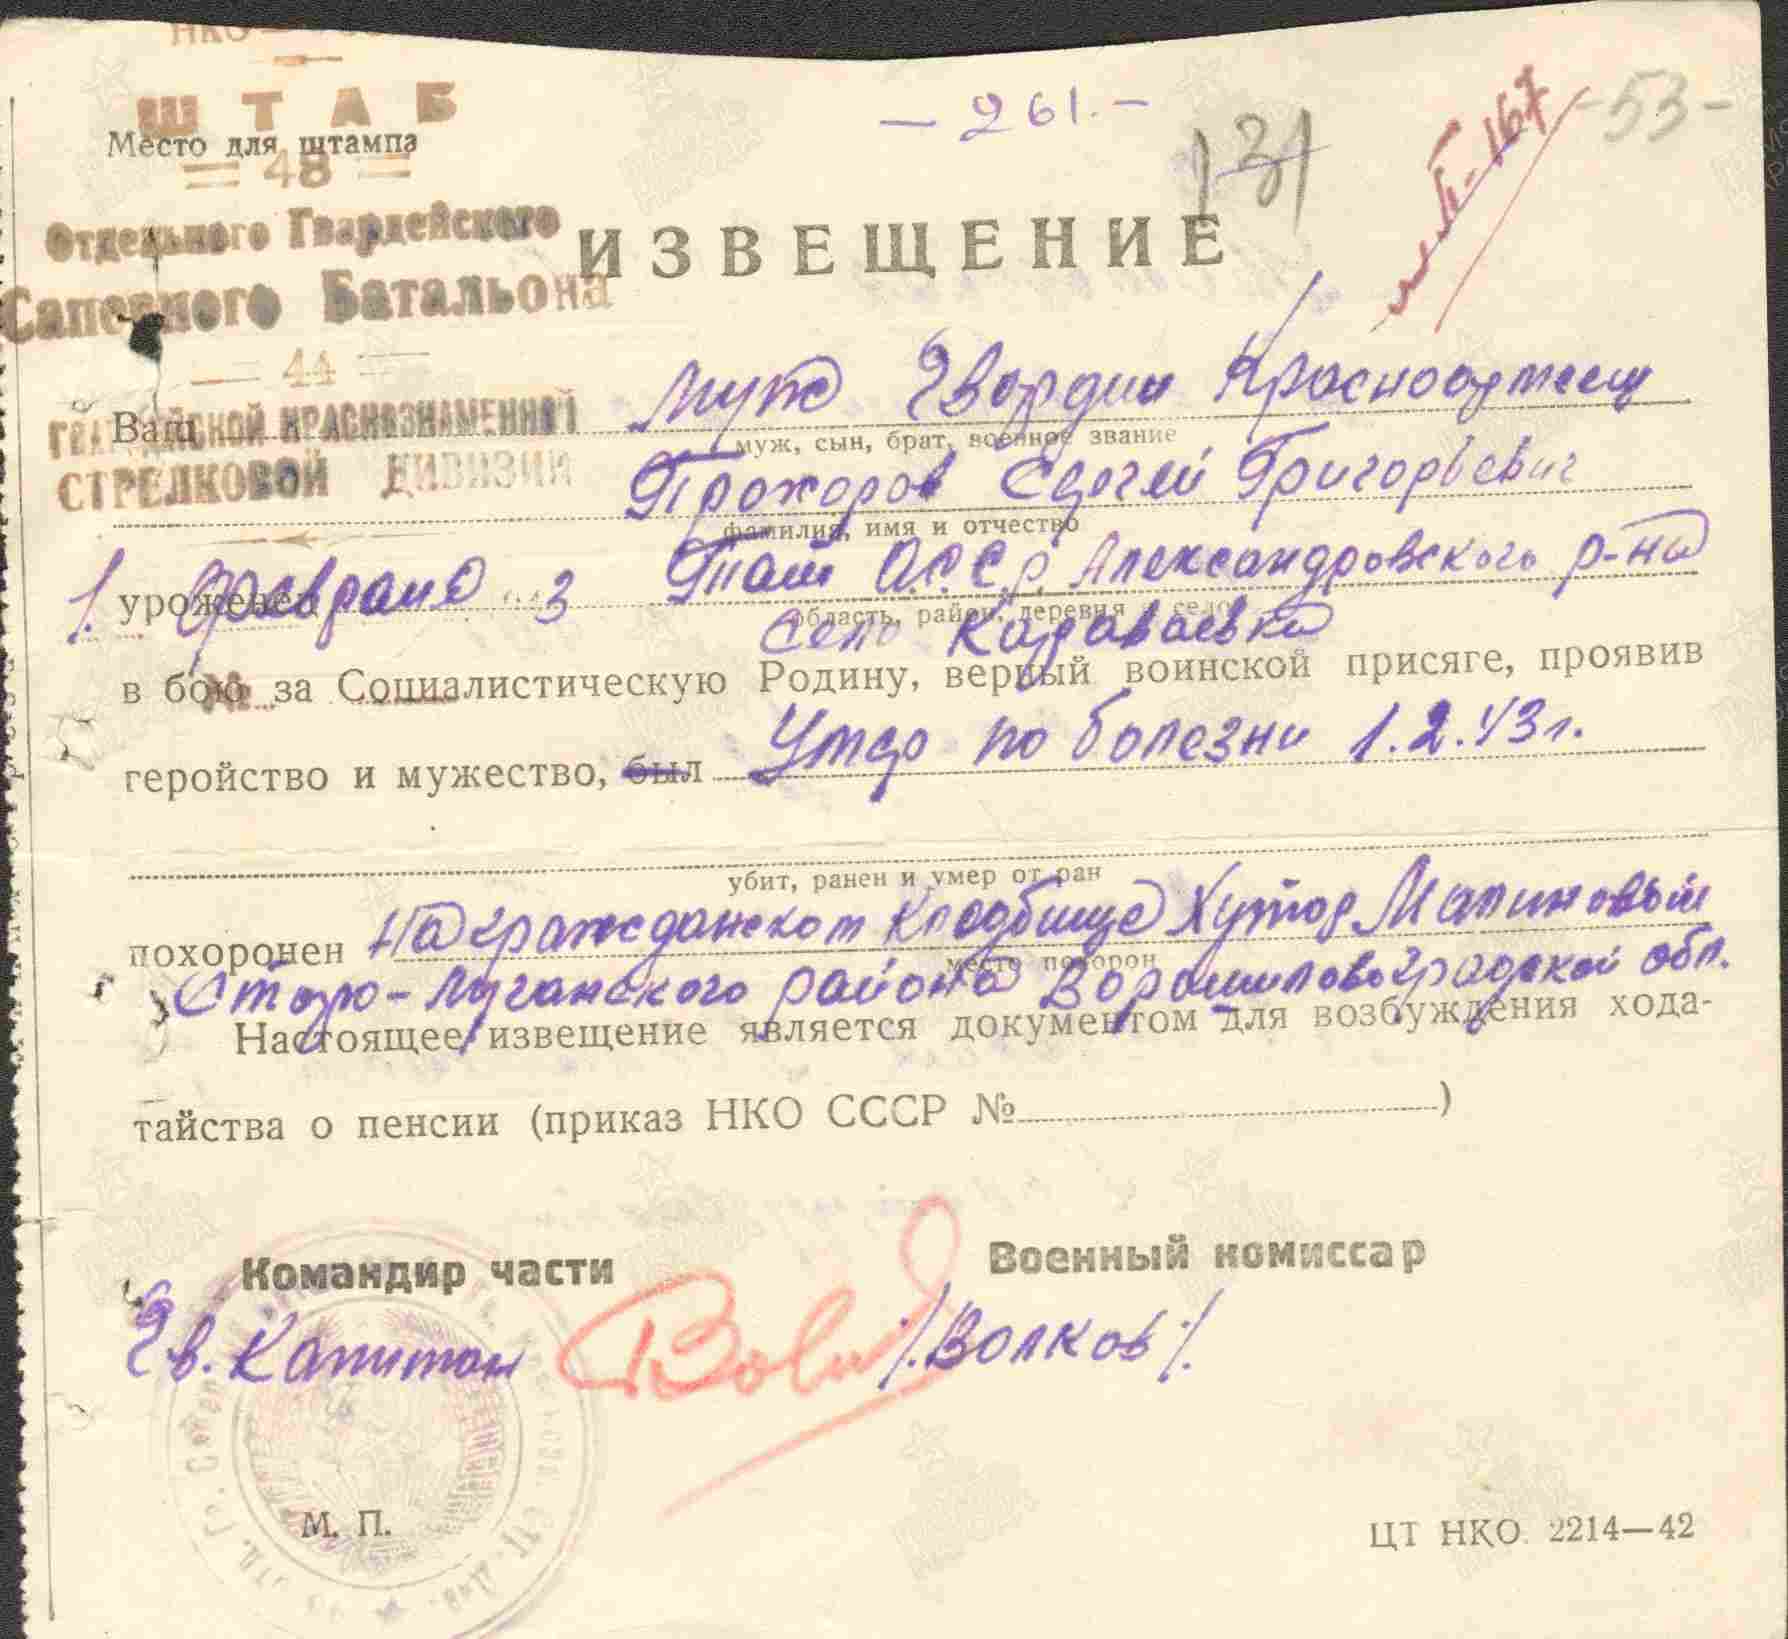 НКО
ШТАБ
Место для штампа
= 48 =
Отдельного Гвардейского
Саперного Батальона
— 44 =
ГВАРДЕЙСКОЙ КРАСНОЗНАМЕННОЙ
СТРЕЛКОВОЙ ДИВИЗИИ
1. февраля 3
№
— 261. —
131
II-167
-53-
ИЗВЕЩЕНИЕ
Ваш муж Гвардии Красноармеец
муж, сын, брат, военное звание
Прохоров Сергей Григорьевич
фамилия, имя и отчество
уроженец Тат А.С.С.Р. Александровского р-на
область, район, деревня и село
село Караваевка
в бою за Социалистическую Родину, верный воинской присяге, проявив
геройство и мужество, был Умер по болезни 1.2.43г.
убит, ранен и умер от ран
похоронен На гражданском Кладбище Хутор Малиновый
место похорон
Старо-Луганского района Ворошиловоградской обл.
Настоящее извещение является документом для возбуждения хода-
тайства о пенсии (приказ НКО СССР № )
Командир части Военный комиссар
Гв. Капитан /.Волков/.
М. П.
ЦТ НКО. 2214—42